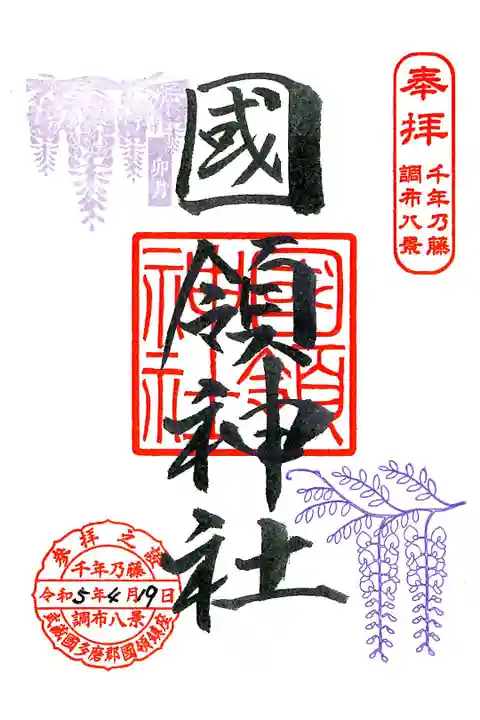 奉拝
千年乃藤
調布八景
卯月
國領神社
國領神社
参拝之証
千年乃藤
令和5年4月19日
調布八景
武蔵國多磨郡國領鎮座